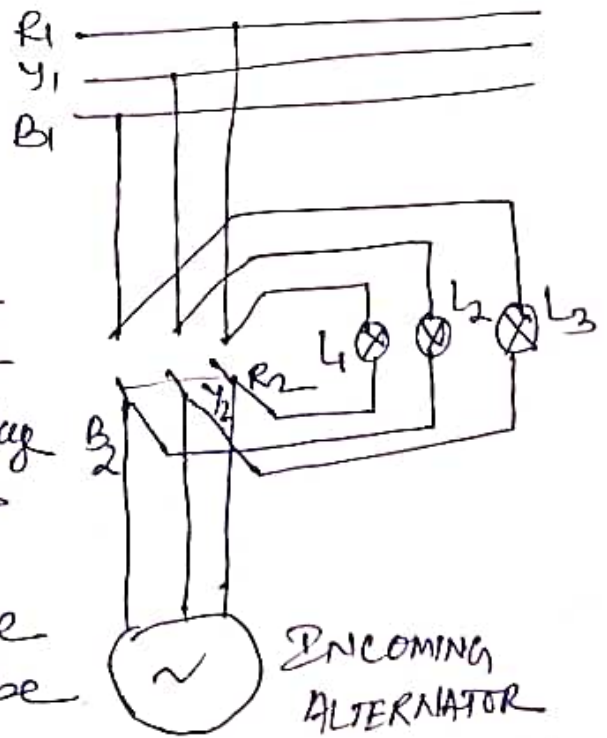 R1
Y1
B1
L1
L2
L3
R2
Y2
B2
INCOMING
ALTERNATOR